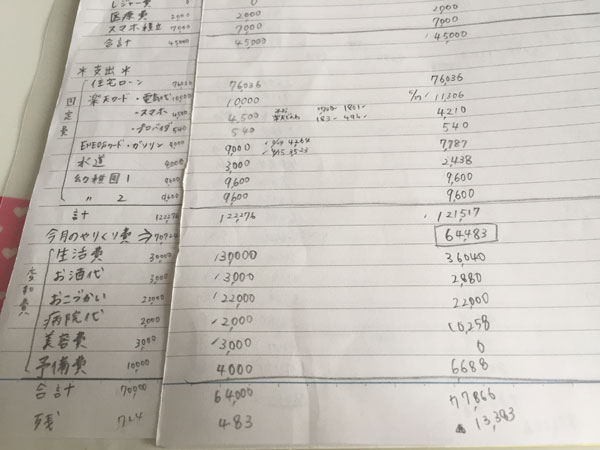 レジャー費 0 0
医療費 2000 2000 2000
スマホ積立 7000 7000 7000
合計 45000 45,000 45,000
*支出*
固定費
住宅ローン 76036 76,036 76,036
楽天カード・電気代 10,500 10000 11,306
・スマホ 4500 4,500 4,210
・プロバイダ 540 540 540
ENEOSカード・ガソリン 9000 9,000 7787
水道 4000 3,000 2,438
幼稚園1 9600 9,600 9,600
〃 2 9,600 9,600
計 122276 122,276 121,517
今月のやりくり費 ⇒ 70724 64,483
変動費
生活費 30000 30000 36040
お酒代 3,000 3,000 2,880
おこづかい 22000 22000 22,000
病院代 2,000 2,000 10,258
美容費 3,000 3,000 0
予備費 10,000 4000 6688
合計 70,000 64,000 77,866
残 724 483 ▲13,383